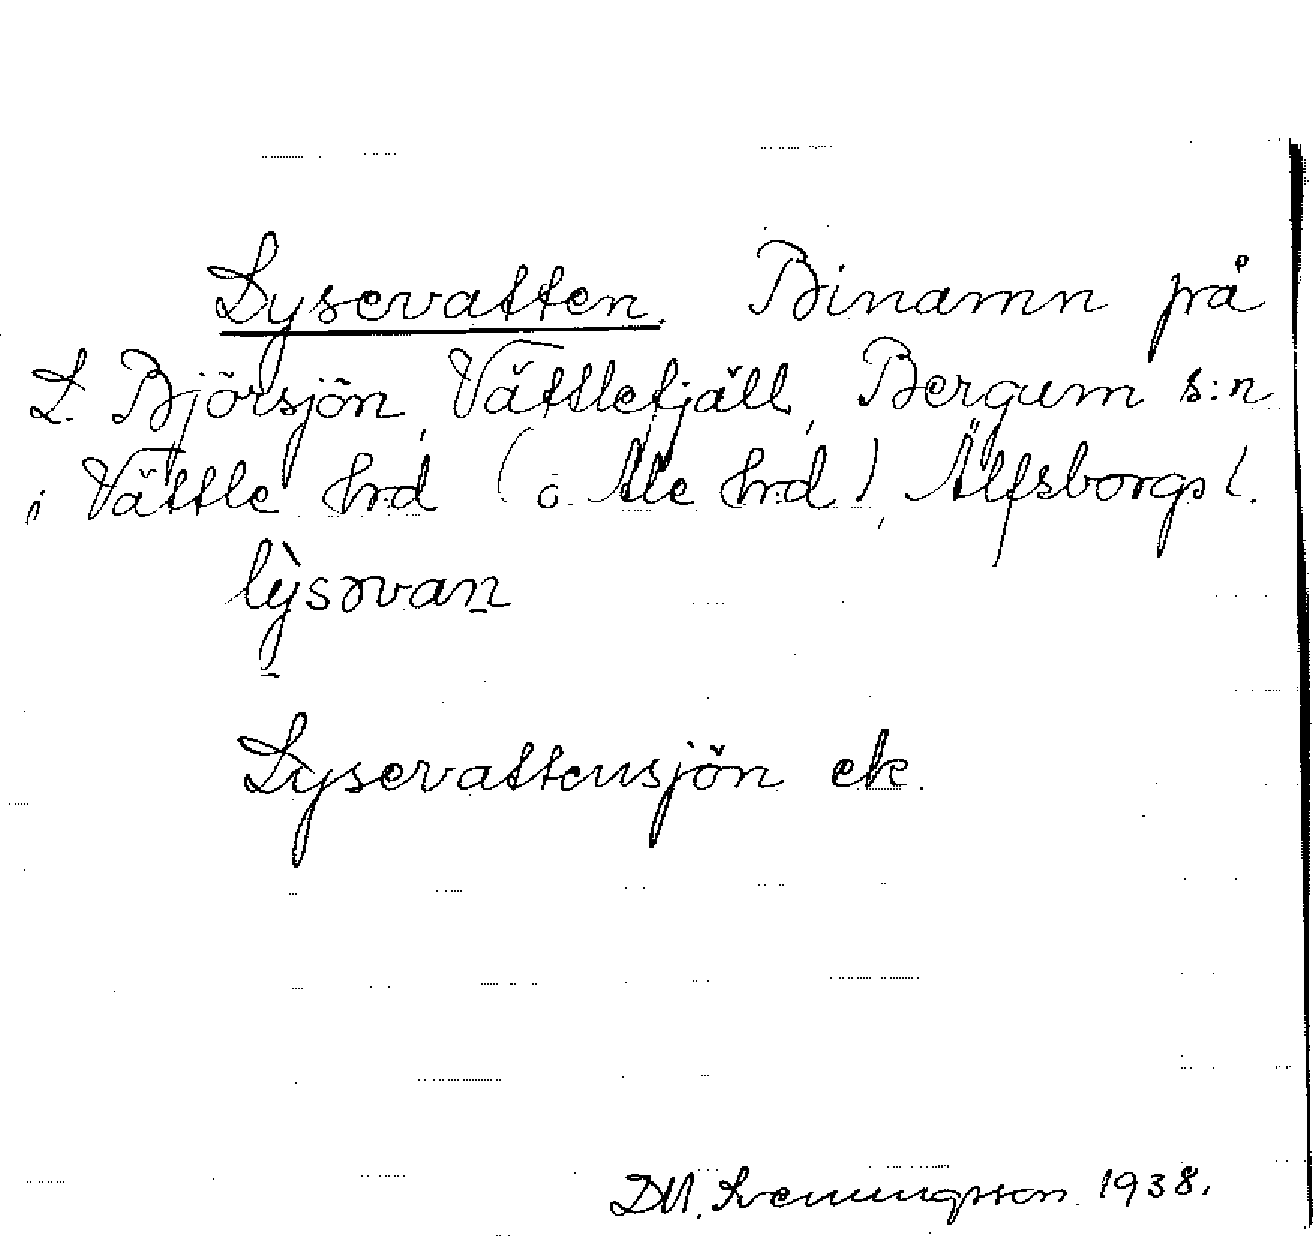 Lysevatten. Binamn på
L. Björsjön, Vättlefjäll, Bergum s:n
i Vättle hrd (o. Ale hrd), Älfsborgs l.
lỳsəvan
Lysevattensjön ek.
D.M. Svenungsson 1938.